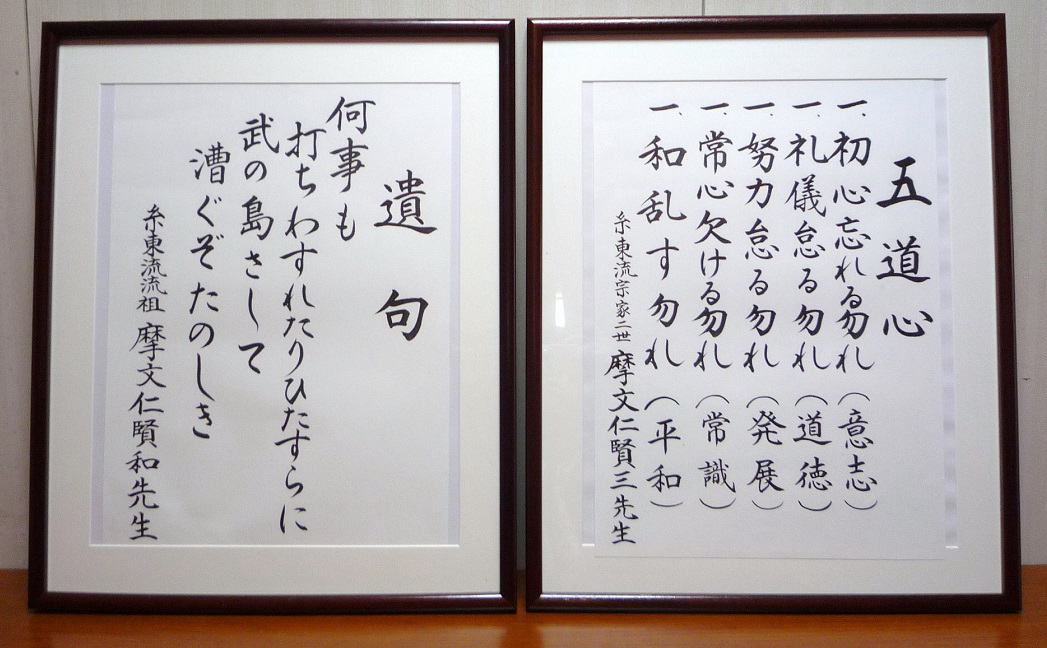 五道心
一、初心忘れる勿れ（意志）
一、礼儀怠る勿れ（道徳）
一、努力怠る勿れ（発展）
一、常心欠ける勿れ（常識）
一、和乱す勿れ（平和）
糸東流宗家二世 摩文仁賢三先生
遺句
何事も
打ちわすれたりひたすらに
武の島さして
漕ぐぞたのしき
糸東流流祖 摩文仁賢和先生